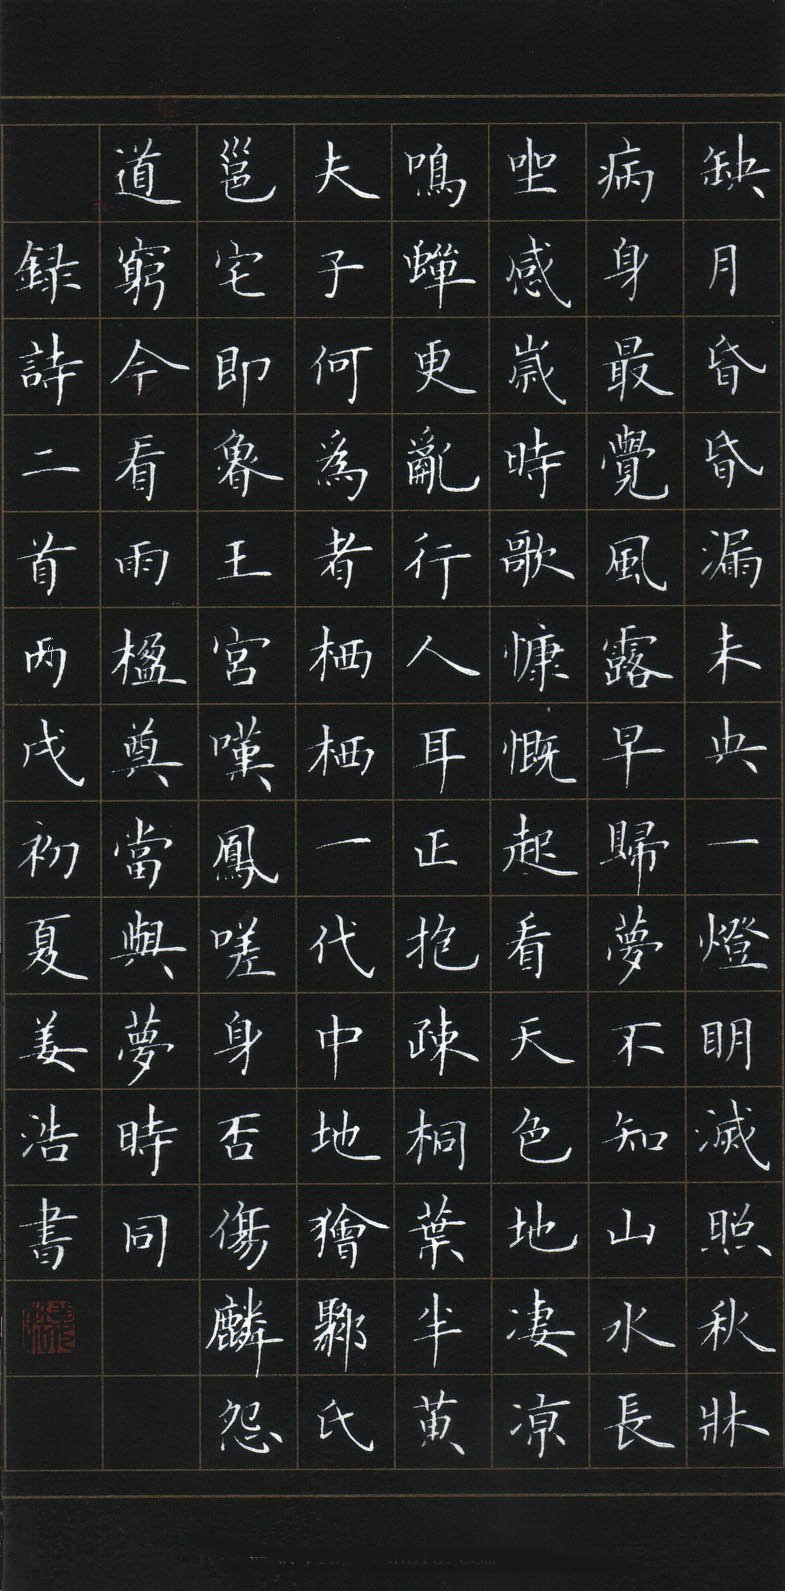 缺月昏昏漏未央一燈明滅照秋牀
病身最覺風露早歸夢不知山水長
坐感歲時歌慷慨起看天色地凄凉
鳴蟬更亂行人耳正抱疎桐葉半黃
夫子何為者栖栖一代中地猶鄹氏
邕宅即魯王宮嘆鳳嗟身否傷麟怨
道窮今看兩楹奠當與夢時同
録詩二首丙戌初夏姜浩書